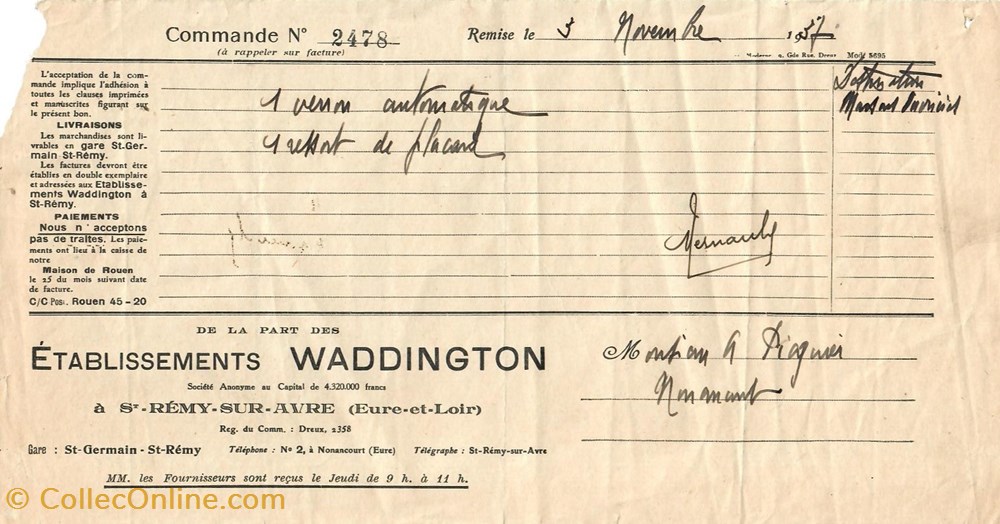 Commande N° 2478 Remise le 3 Novembre 1937
(à rappeler sur facture)
Moderne Gde Rue, Dreux Mod. 5695
L'acceptation de la com-
mande implique l'adhésion à
toutes les clauses imprimées
et manuscrites figurant sur
le présent bon.
LIVRAISONS
Les marchandises sont li-
vrables en gare St-Ger-
main St-Rémy.
Les factures devront être
établies en double exemplaire
et adressées aux Etablisse-
ments Waddington à
St-Rémy.
PAIEMENTS
Nous n'acceptons
pas de traites. Les paie-
ments ont lieu à la caisse de
notre
Maison de Rouen
le 25 du mois suivant date
de facture.
C/C Pos. Rouen 45-20
1 verrou automatique
1 ressort de placard
DE LA PART DES
ÉTABLISSEMENTS WADDINGTON
Société Anonyme au Capital de 4.320.000 francs
à St-RÉMY-SUR-AVRE (Eure-et-Loir)
Reg. du Comm. : Dreux, 2358
Gare : St-Germain-St-Rémy Téléphone : No 2, à Nonancourt (Eure) Télégraphe : St-Rémy-sur-Avre
MM. les Fournisseurs sont reçus le Jeudi de 9 h. à 11 h.
Monsieur A
Nonancourt
© CollecOnline.com